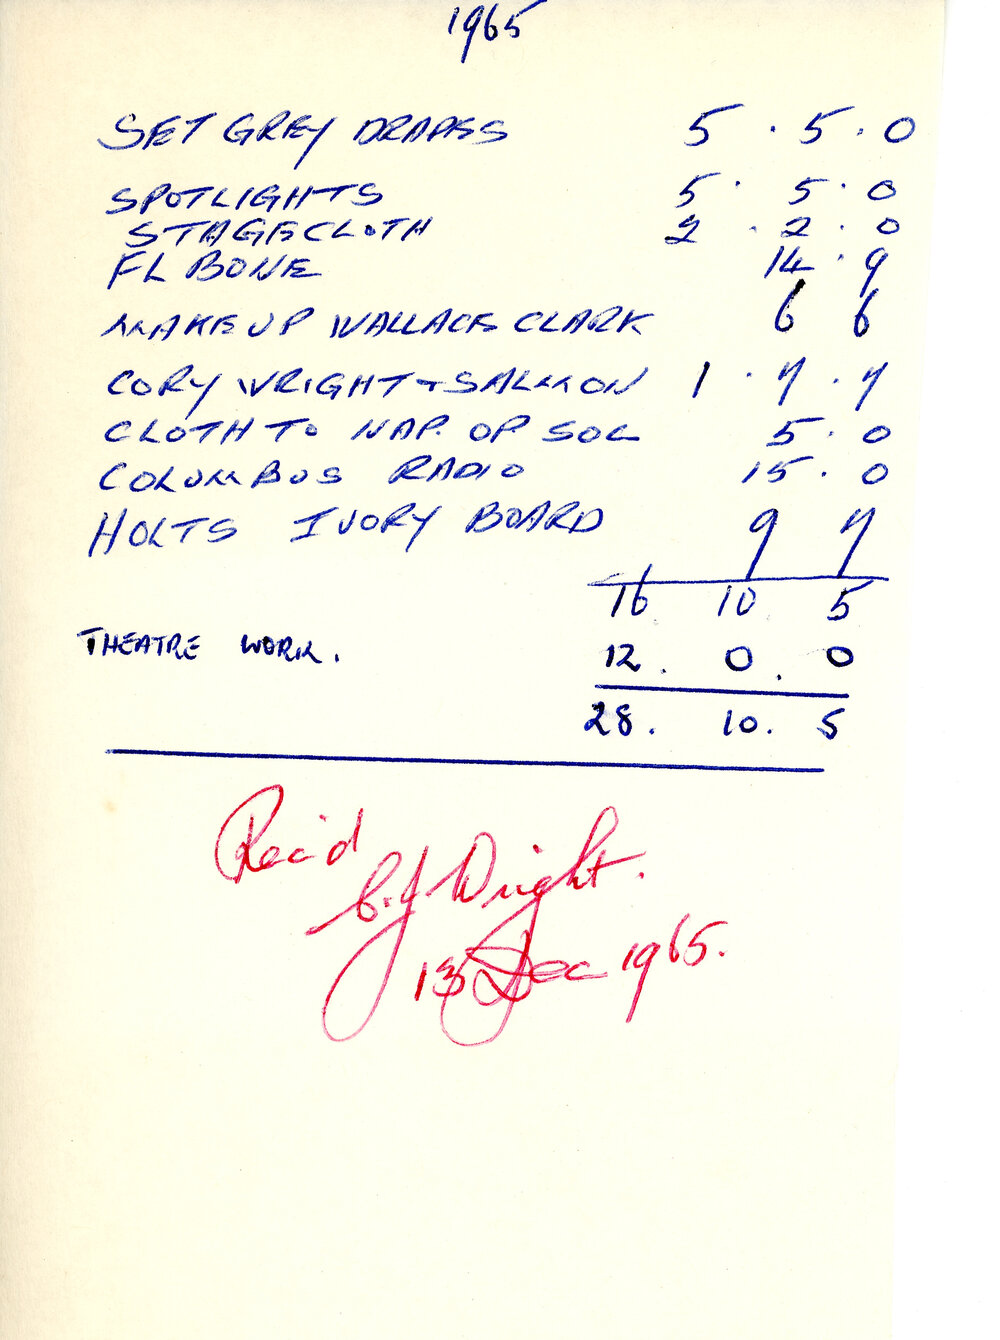 1965
SET GREY DRAPES 5 . 5 . 0
SPOTLIGHTS 5 . 5 . 0
STAGECLOTH 2 . 2 . 0
FL BONE 14 . 9
MAKE UP WALLACE CLARK 6 6
CORY WRIGHT + SALMON 1 . 7 . 7
CLOTH TO NAP. OP SOC 5 . 0
COLUMBUS RADIO 15 . 0
HOLTS IVORY BOARD 9 7
16 10 5
THEATRE WORK. 12 . 0 . 0
28 . 10 . 5
Rec'd
C.J Wright.
13 Dec 1965.